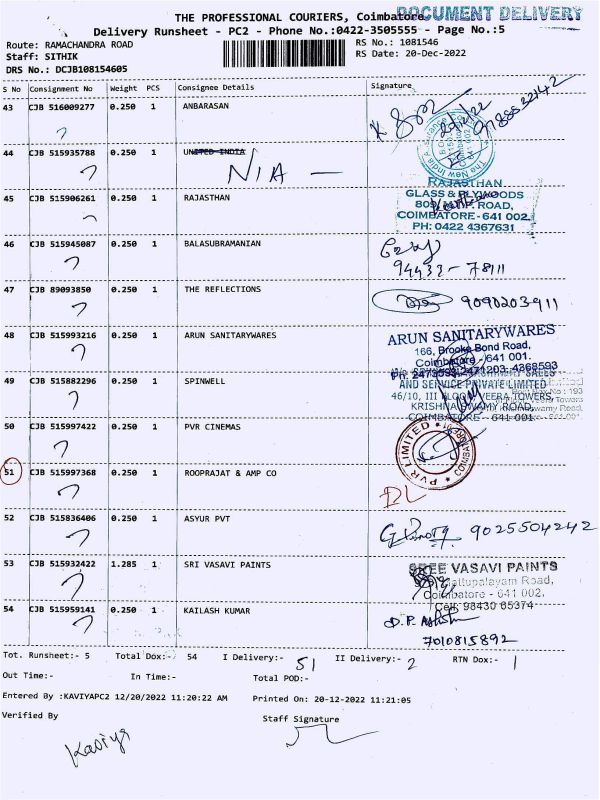 THE PROFESSIONAL COURIERS, Coimbatore DOCUMENT DELIVERY
Delivery Runsheet - PC2 - Phone No.:0422-3505555 - Page No.:5
Route: RAMACHANDRA ROAD RS No.: 1081546
Staff: SITHIK RS Date: 20-Dec-2022
DRS No.: DCJB108154605
S No Consignment No Weight PCS Consignee Details Signature
43 CJB 516009277 0.250 1 ANBARASAN
20/12/22
9788532142
The New India
44 CJB 515935788 0.250 1 UNITED INDIA
N/A —
45 CJB 515906261 0.250 1 RAJASTHAN
RAJASTHAN
GLASS & PLYWOODS
ROAD,
COIMBATORE - 641 002.
PH: 0422 4367631
46 CJB 515945087 0.250 1 BALASUBRAMANIAN
94433-78111
47 CJB 89093850 0.250 1 THE REFLECTIONS
9090203911
48 CJB 515993216 0.250 1 ARUN SANITARYWARES
ARUN SANITARYWARES
166, Brooke Bond Road,
Coimbatore - 641 001.
4368593
49 CJB 515882296 0.250 1 SPINWELL
SALES
AND SERVICE PRIVATE LIMITED
46/10, III FLOOR, VEERA TOWERS,
KRISHNASWAMY ROAD,
COIMBATORE - 641 001.
50 CJB 515997422 0.250 1 PVR CINEMAS
PVR LIMITED * COIMBATORE *
51 CJB 515997368 0.250 1 ROOPRAJAT & AMP CO
DL
52 CJB 515836406 0.250 1 ASYUR PVT
9025504242
53 CJB 515932422 1.285 1 SRI VASAVI PAINTS
SREE VASAVI PAINTS
Mettupalayam Road,
Coimbatore - 641 002.
Cell: 98430 65374
54 CJB 515959141 0.250 1 KAILASH KUMAR
D.P. Ashish
7010815892
Tot. Runsheet:- 5 Total Dox:- 54 I Delivery:- 51 II Delivery:- 2 RTN Dox:- 1
Out Time:- In Time:- Total POD:-
Entered By :KAVIYAPC2 12/20/2022 11:20:22 AM Printed On: 20-12-2022 11:21:05
Verified By Staff Signature
Kaviya